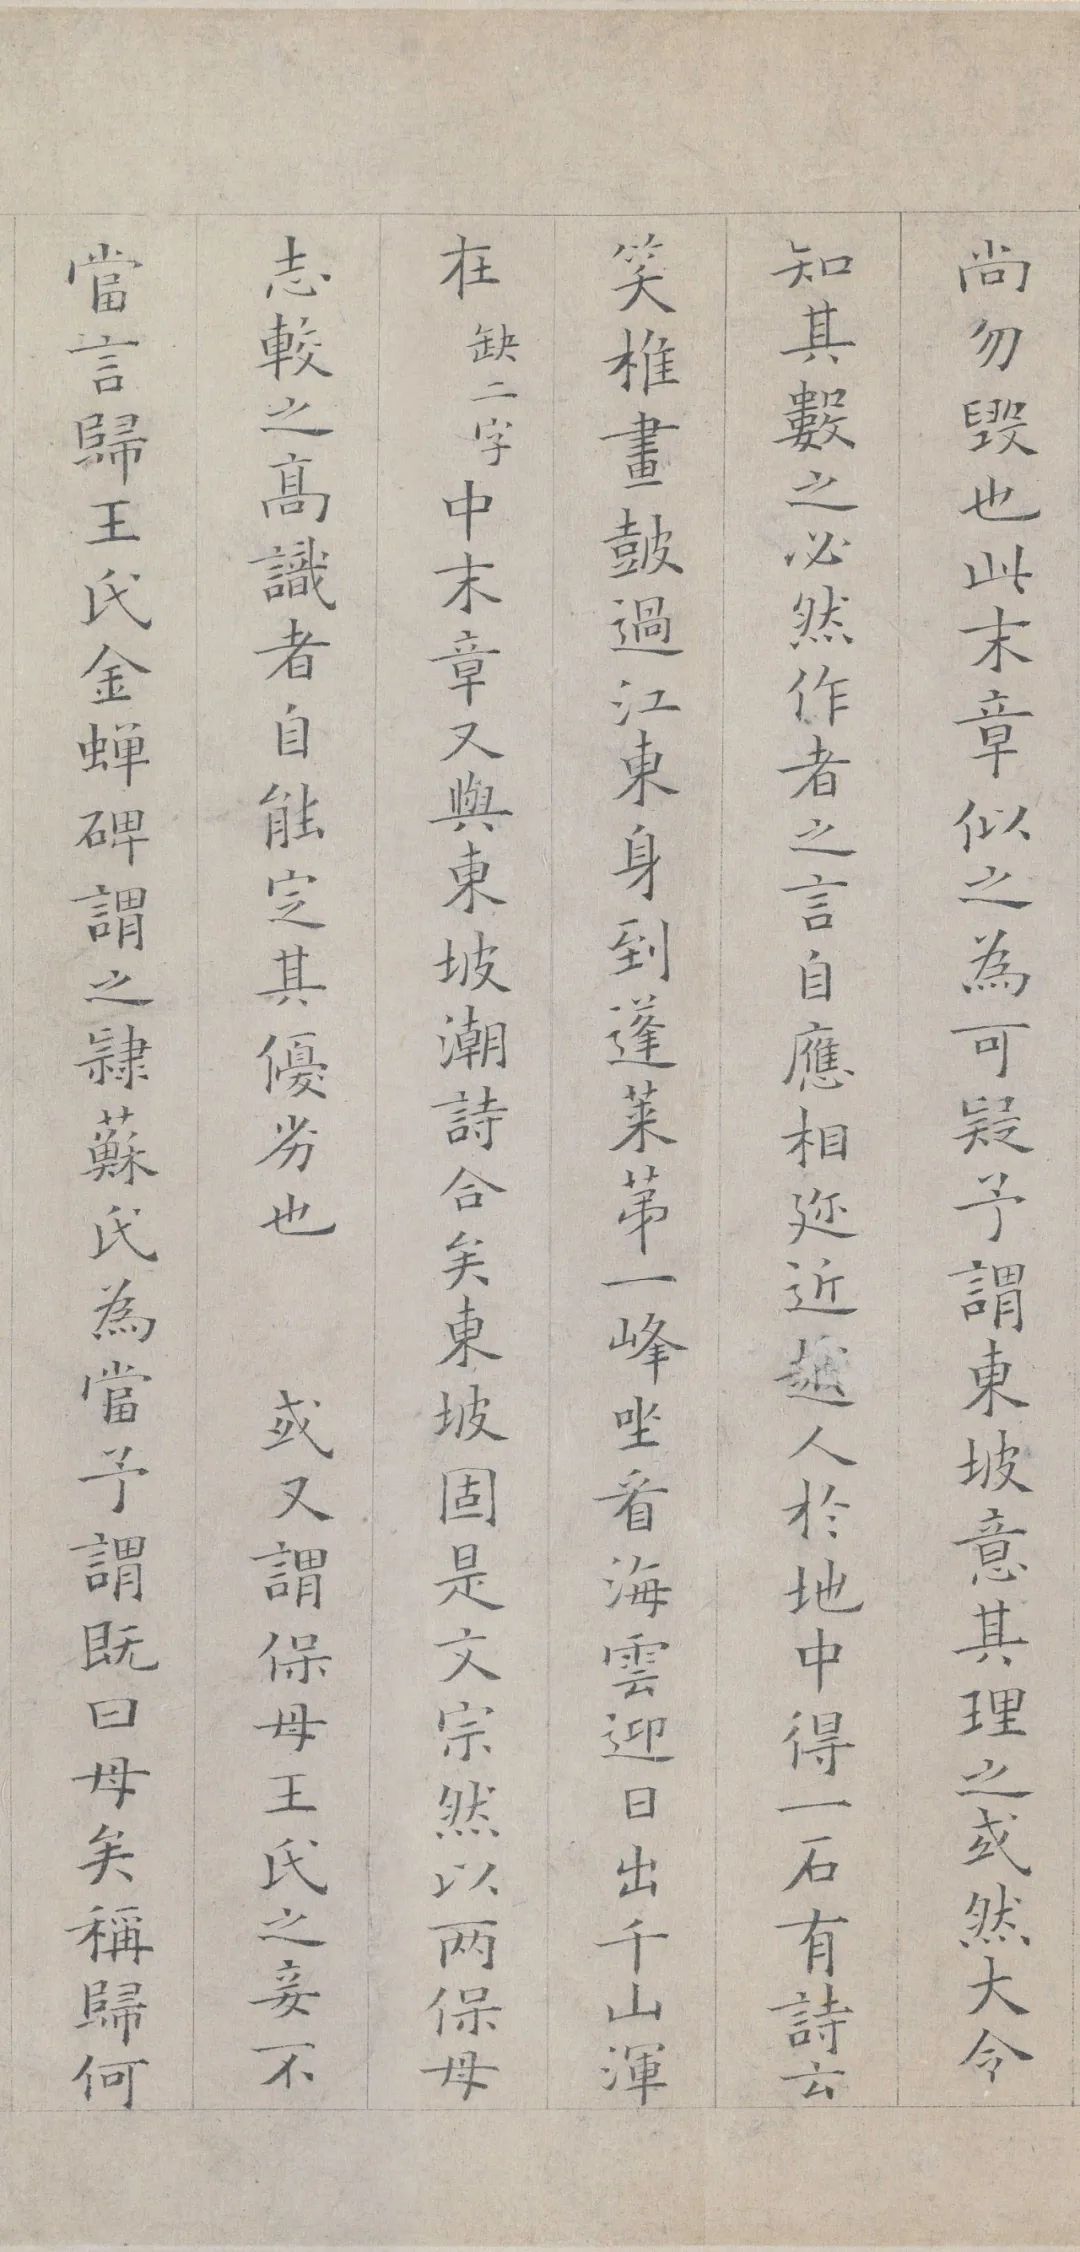 尚勿毀也此末章似之為可疑予謂東坡意其理之或然大令
知其數之必然作者之言自應相迩近越人於地中得一石有詩云
笑椎畫鼓過江東身到蓬萊第一峰坐看海雲迎日出千山渾
在缺二字中末章又與東坡潮詩合矣東坡固是文宗然以两保母
志較之高識者自能定其優劣也 或又謂保母王氏之妾不
當言歸王氏金蟬碑謂之隸蘇氏為當予謂既曰母矣稱歸何